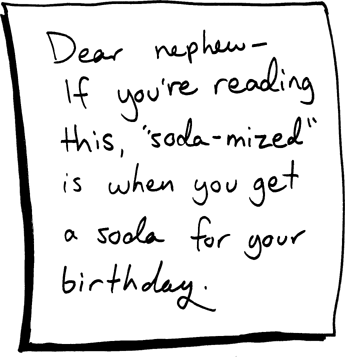 Dear nephew-
If you're reading
this, "soda-mized"
is when you get
a soda for your
birthday.